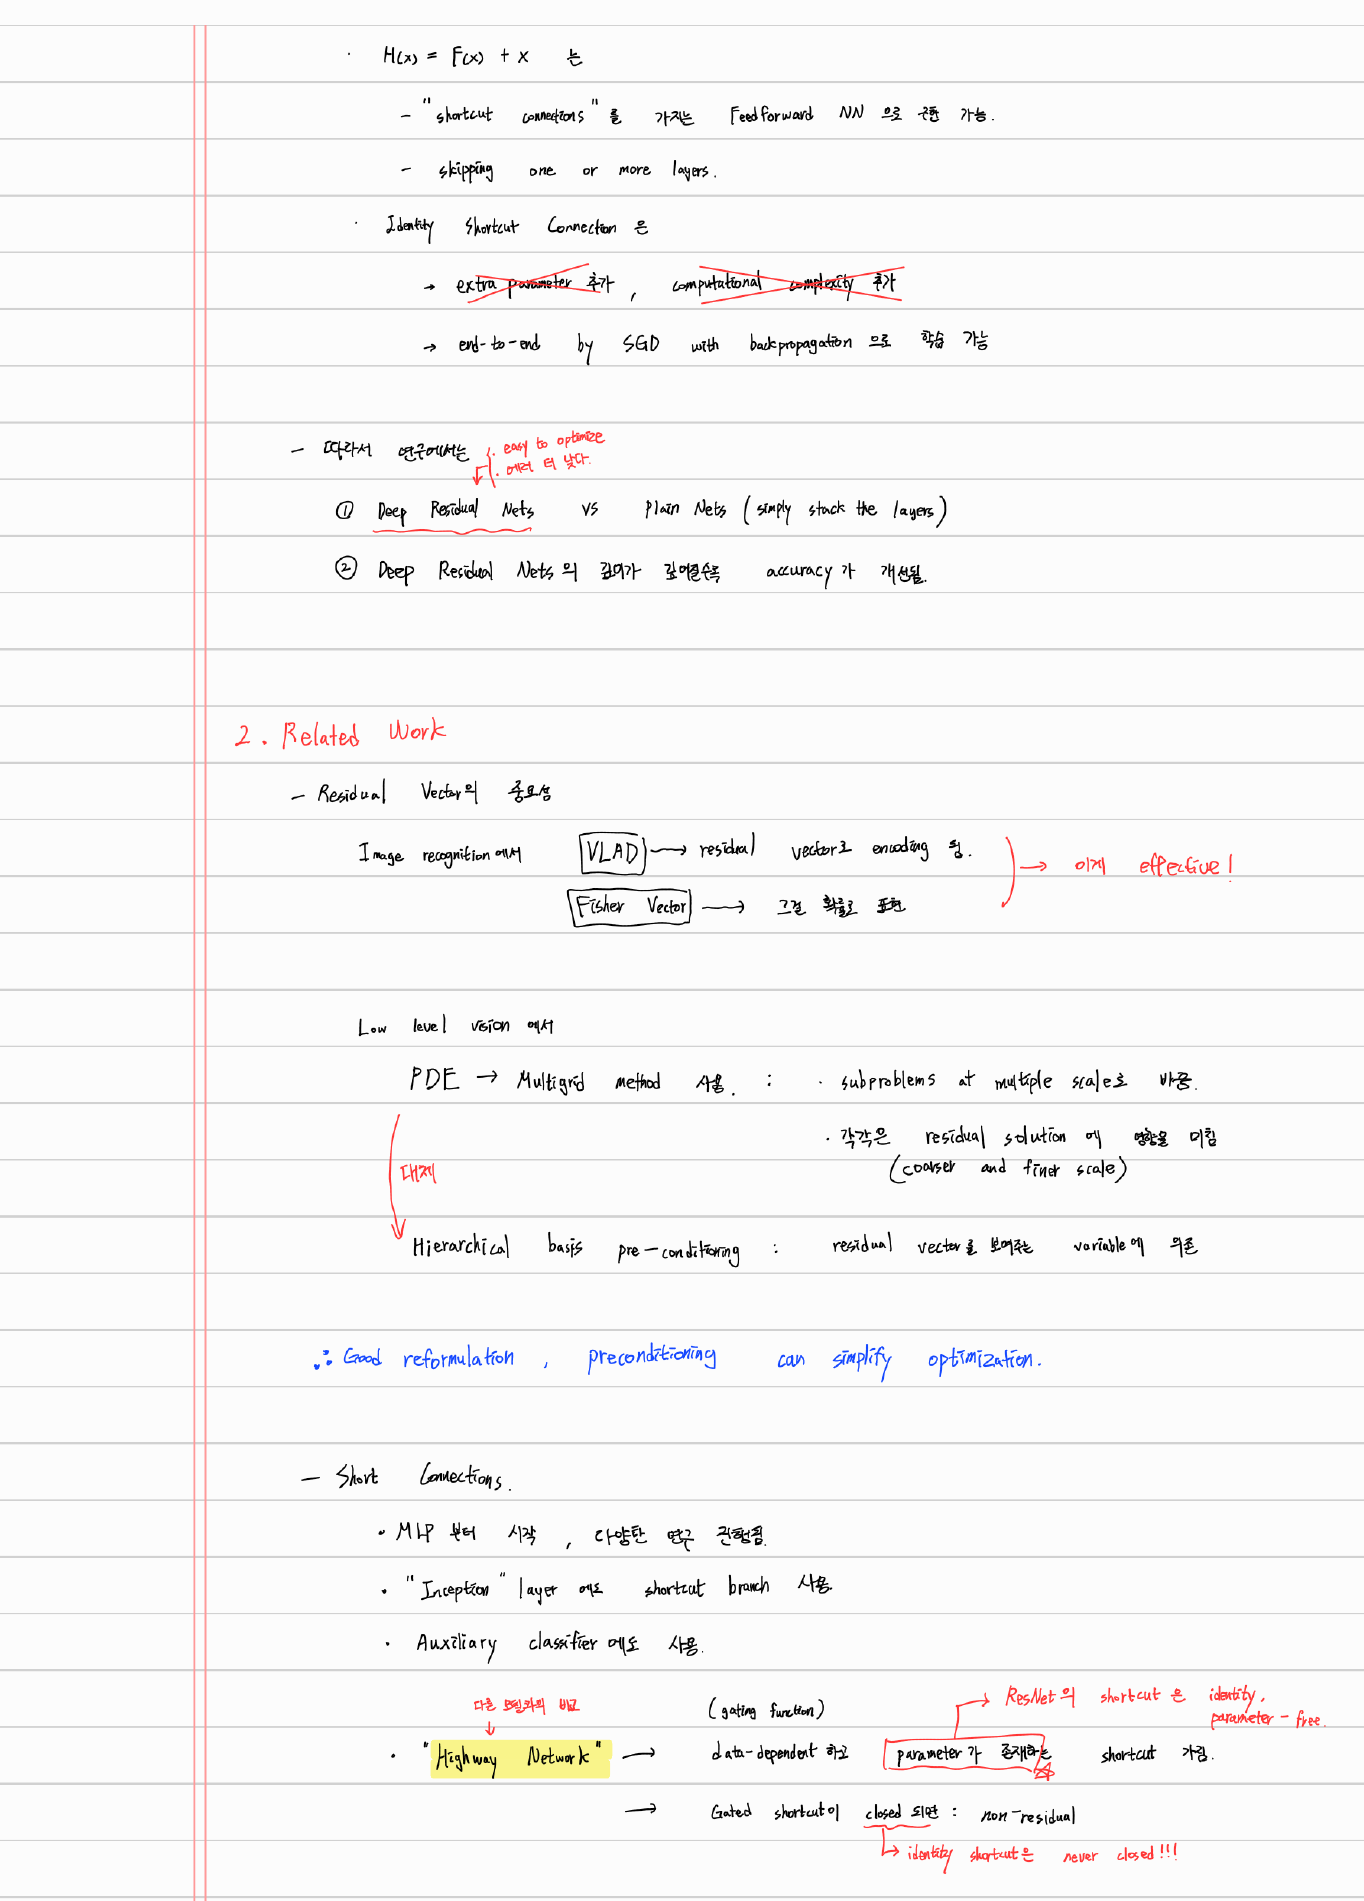 · H(x) = F(x) + x 는
- "shortcut connections"를 가지는 Feedforward NN 으로 구현 가능.
- skipping one or more layers.
· Identity Shortcut Connection 은
→ extra parameter 추가, computational complexity 추가
→ end-to-end by SGD with backpropagation 으로 학습 가능
- 따라서 연구에서는
· easy to optimize
· 에러 더 낮다.
① Deep Residual Nets vs Plain Nets (simply stack the layers)
② Deep Residual Nets의 깊이가 깊어질수록 accuracy가 개선됨.
2. Related Work
- Residual Vector의 중요성
Image recognition에서 VLAD → residual vector로 encoding 됨.
Fisher Vector → 그걸 확률로 표현
→ 이게 effective!
Low level vision 에서
PDE → Multigrid method 사용. : · subproblems at multiple scale로 바꿈.
· 각각은 residual solution 에 영향을 미침
(coarser and finer scale)
대체
Hierarchical basis pre-conditioning : residual vector를 보여주는 variable에 의존
∴ Good reformulation, preconditioning can simplify optimization.
- Short Connections.
· MLP 부터 시작, 다양한 연구 진행됨.
· "Inception" layer 에도 shortcut branch 사용.
· Auxiliary classifier에도 사용.
다른 모델과의 비교
(gating function)
→ ResNet의 shortcut 은 identity,
parameter-free.
· "Highway Network" → data-dependent 하고 parameter가 존재하는 shortcut 가짐.
→ Gated shortcut이 closed 되면 : non-residual
→ identity shortcut은 never closed!!!